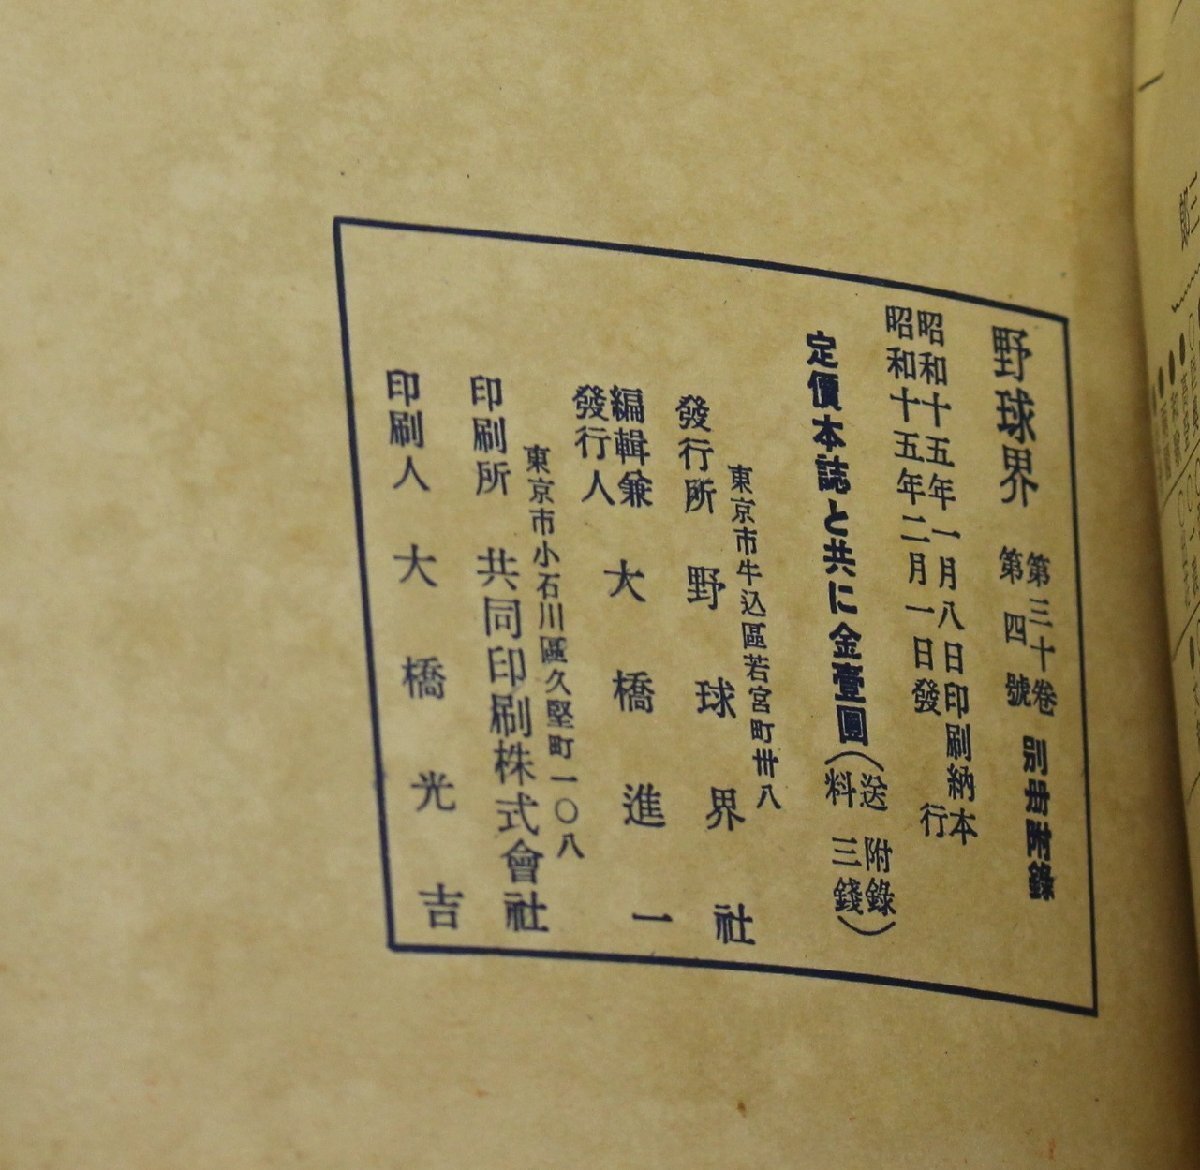 野球界 第三十卷 第四號 別册附錄
昭和十五年一月八日印刷納本
昭和十五年二月一日發行
定價本誌と共に金壹圓(送料 附錄三錢)
東京市牛込區若宮町卅八
發行所 野球界社
編輯兼發行人 大橋進一
東京市小石川區久堅町一〇八
印刷所 共同印刷株式會社
印刷人 大橋光吉